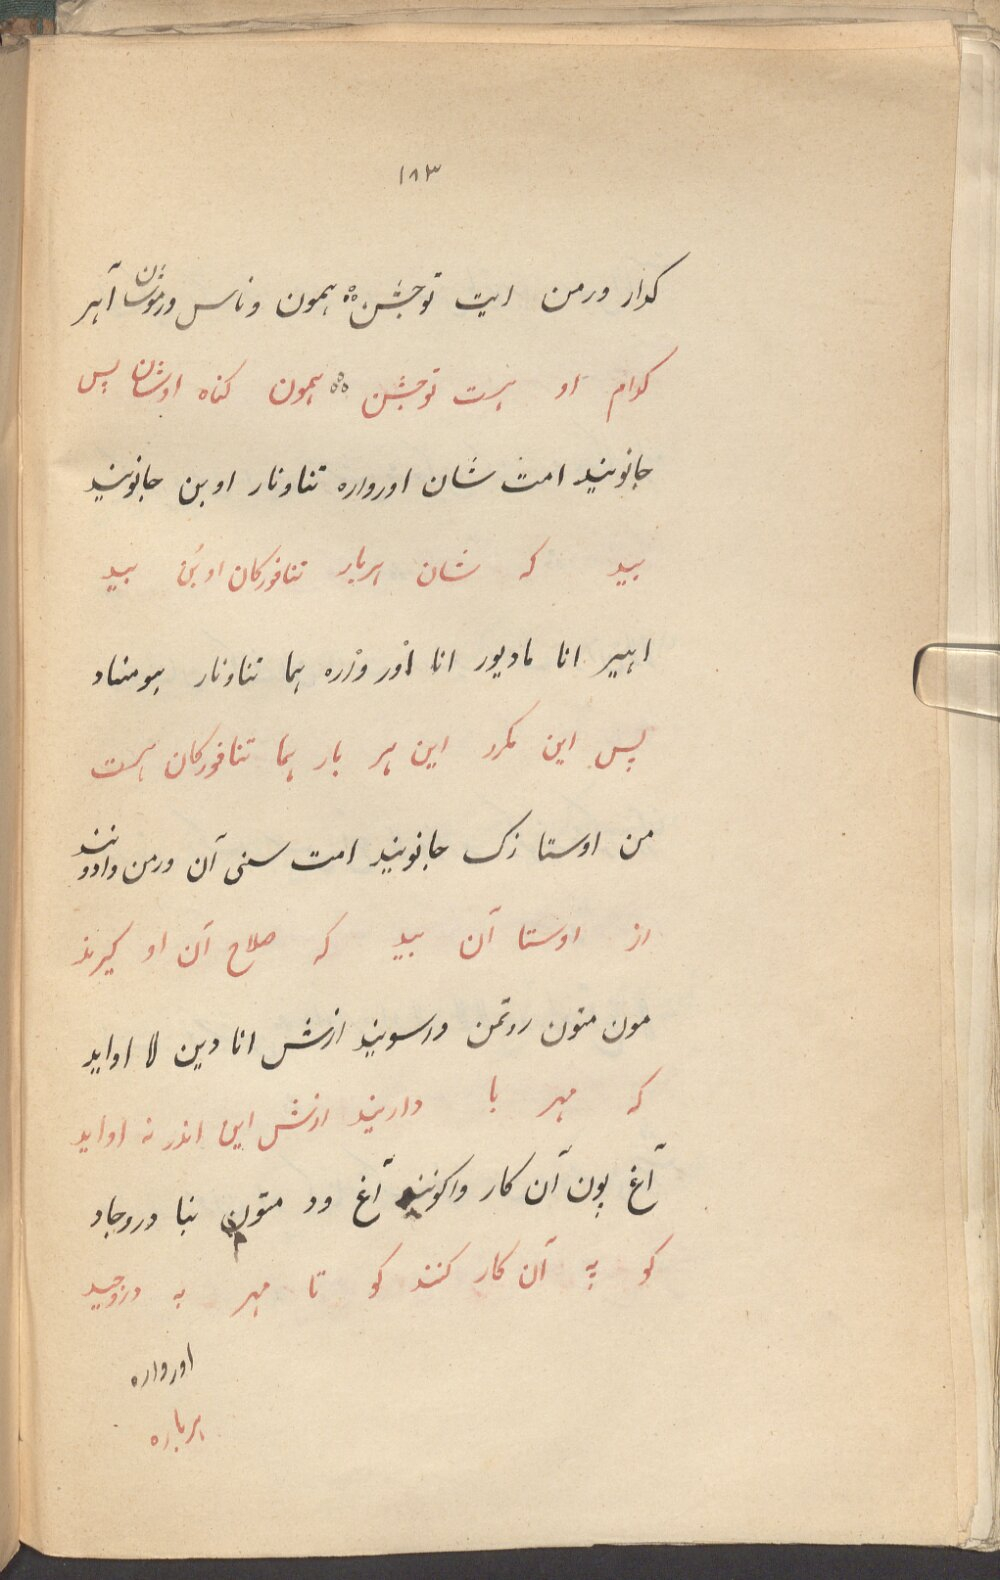 ۱۸۳
کدار ورمن ایت توجشن ஃ همون وناس ورموشان آهر
کدام او هست توجشن ஃ همون کناه اوشان پس
جانویند امت شان اورواره تناونار اوبن جانویند
بید که شان اهربار تنافورکان او بُن بید
اهیر انا مادیور انا اور وزره هما تناونار هومناد
پس این مکرد این هر بار هما تنافورکان هست
من اوستا زک جانویند امت سنی آن ورمن وادونند
از اوستا آن بید که صلاح آن او کیرند
مون متون روتمن وراسویند ازش انا دین لا اواید
که مهر با داریند ازش این اندر نه اواید
آغ پون آن کار واکونند آغ ود متون نبا دروجاد
کو په آن کار کنند کو تا مهر به دروجید
اورواره
هرباره